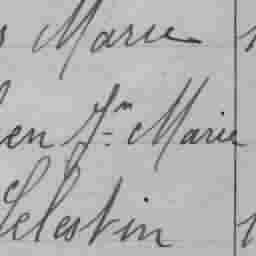 Marie
en Jn Marie
Celestin